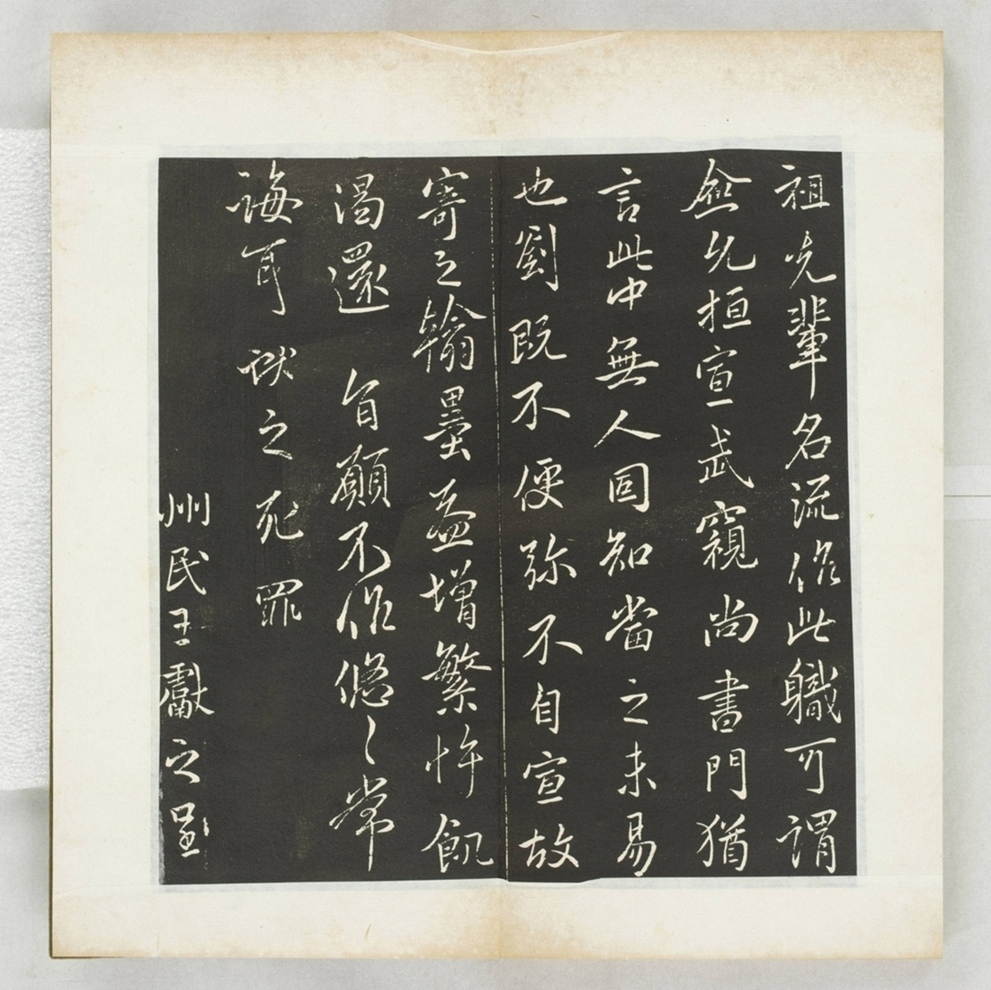 祖先輩名流作此職可謂
僉允桓宣武窺尚書門猶
言此中無人同知當之未易
也劉既不便弥不自宣故
寄之翰墨益增繁忤飢
渴還旨願不作悠々常
誨耳 献之死罪
州民王獻之呈